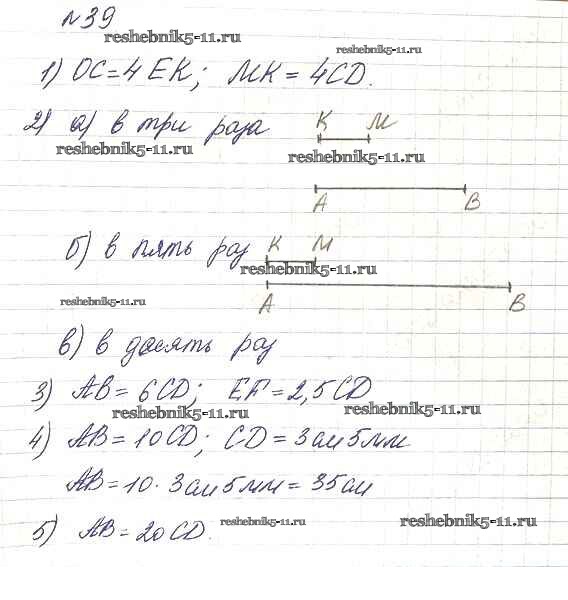 №39
reshebnik5-11.ru
reshebnik5-11.ru
1) ОС=4 ЕК; МК = 4CD.
2) а) в три раза К М
reshebnik5-11.ru reshebnik5-11.ru
А В
б) в пять раз К М
reshebnik5-11.ru
reshebnik5-11.ru
А В
в) в десять раз
3) АВ = 6CD; EF = 2,5CD
reshebnik5-11.ru reshebnik5-11.ru
4) АВ = 10CD; CD = 3см 5мм
АВ = 10 · 3см 5мм = 35см
reshebnik5-11.ru reshebnik5-11.ru
5) АВ = 20CD.